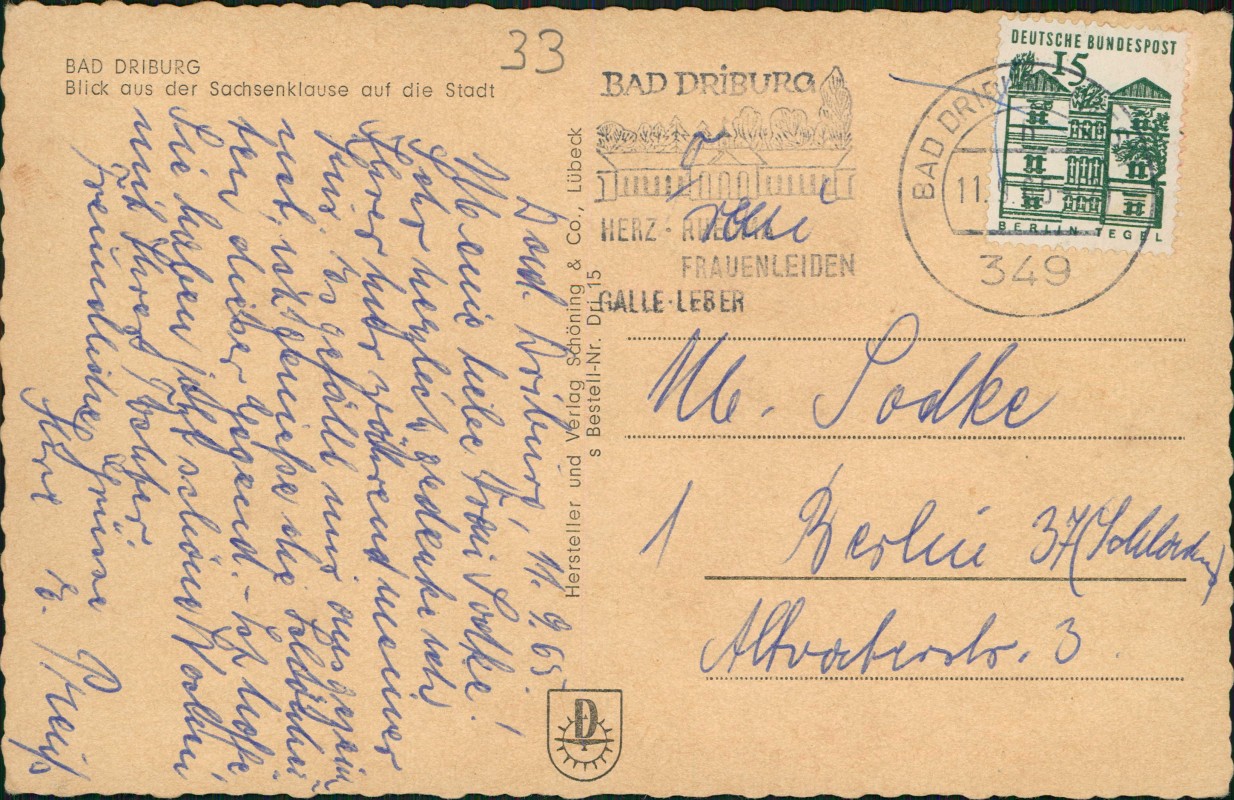 BAD DRIBURG
Blick aus der Sachsenklause auf die Stadt
33
Bad Driburg, 11.9.65
Meine liebe Frau Sodke!
Sehr herzlich gedenke ich
Ihrer hier während meiner
Kur. Es gefällt mir ausgezeich-
net, ich genieße die Schönhei-
ten dieser Gegend. - Ich hoffe
Sie haben jetzt schöne Wochen
mit Ihrer Tochter
Freundliche Grüße
Ihre E. Preuß
Hersteller und Verlag Schöning & Co., Lübeck
s Bestell-Nr. Dri 15
BAD DRIBURG
HERZ · RHEUMA
FRAUENLEIDEN
GALLE·LEBER
DEUTSCHE BUNDESPOST
15
BERLIN TEGEL
BAD DRIBURG
11.
349
Sodke
1 Berlin 37
Altvaterstr. 3
D